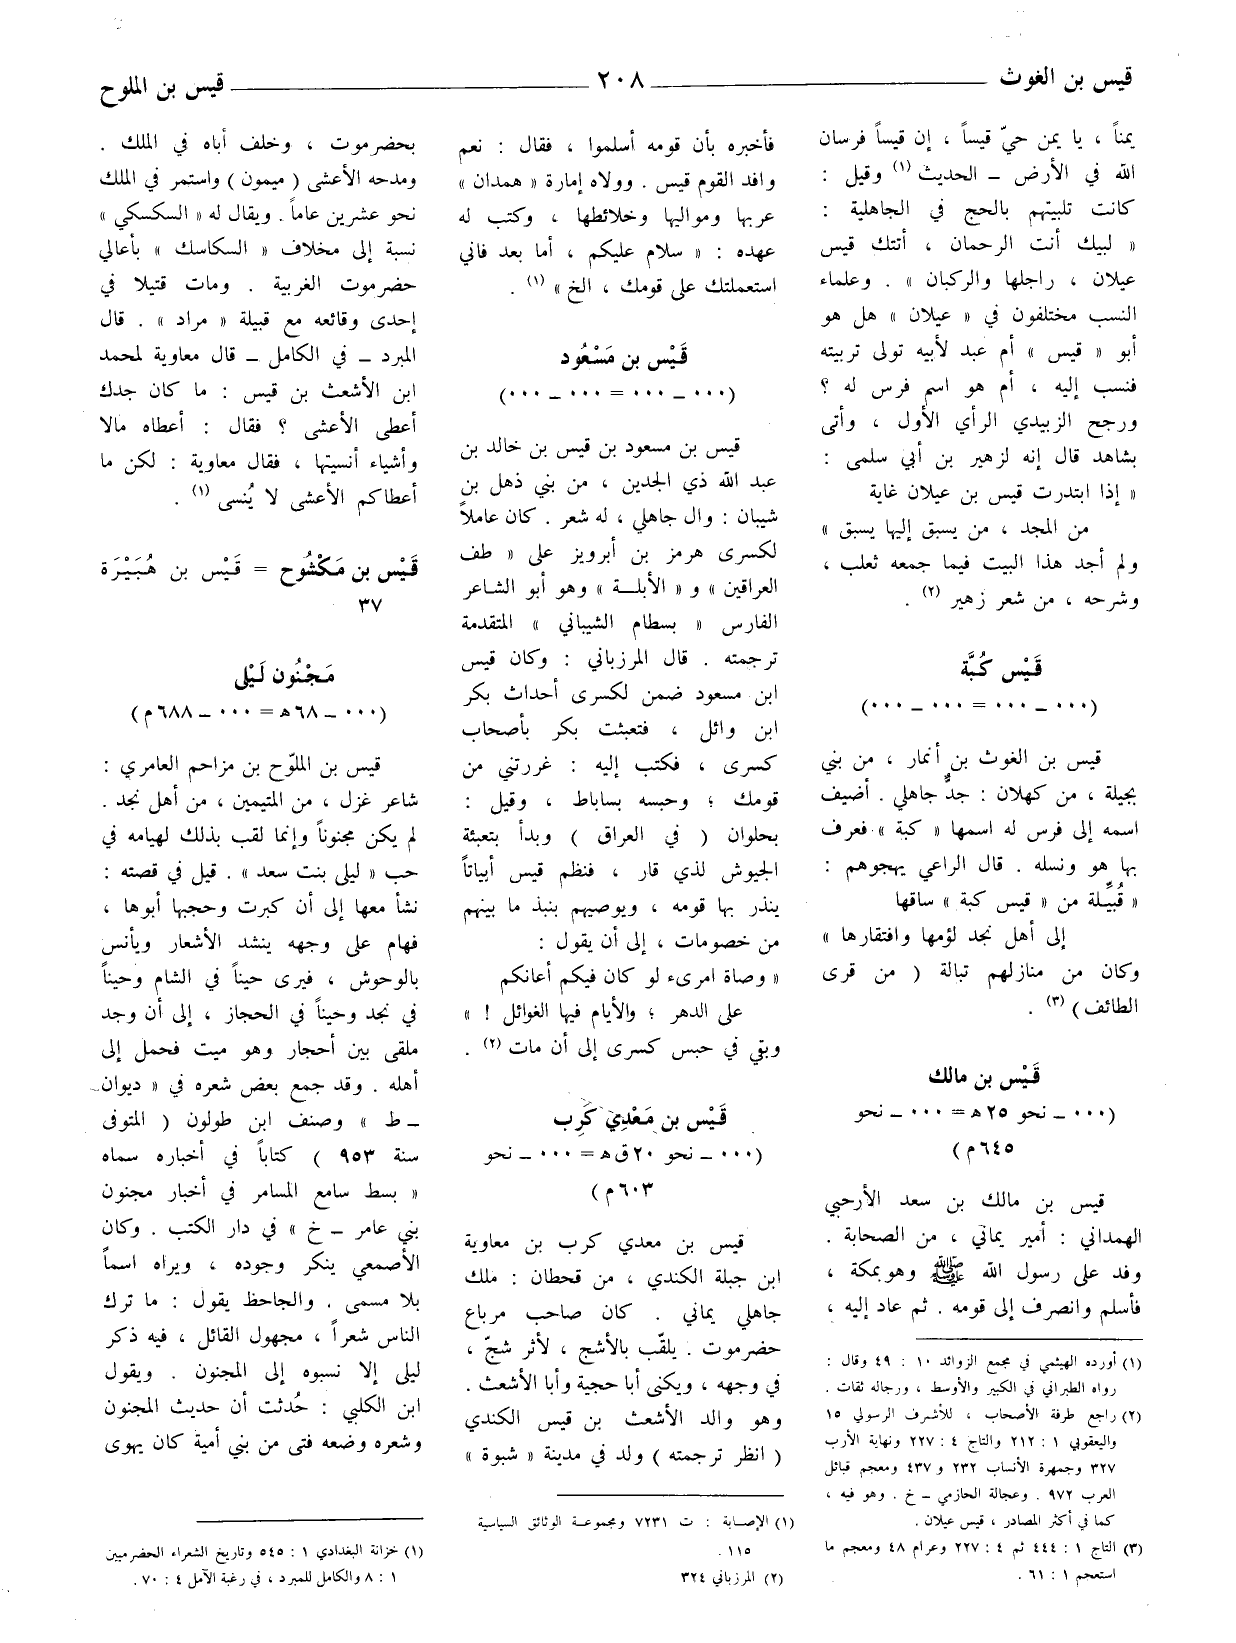 قيس بن الغوث
٢٠٨
قيس بن الملوح
يمناً ، يا يمن حيّ قيساً ، إن قيساً فرسان
الله في الأرض ــ الحديث (١) وقيل :
كانت تلبيتهم بالحج في الجاهلية :
« لبيك أنت الرحمان ، أتتك قيس
عيلان ، راجلها والركبان » . وعلماء
النسب مختلفون في « عيلان » هل هو
أبو « قيس » أم عبد لأبيه تولى تربيته
فنسب إليه ، أم هو اسم فرس له ؟
ورجح الزبيدي الرأي الأول ، وأتى
بشاهد قال إنه لزهير بن أبي سلمى :
« إذا ابتدرت قيس بن عيلان غاية
من المجد ، من يسبق إليها يسبق »
ولم أجد هذا البيت فيما جمعه ثعلب ،
وشرحه ، من شعر زهير (٢) .
قَيْس كُبَّة
(٠٠٠ ــ ٠٠٠ = ٠٠٠ ــ ٠٠٠)
قيس بن الغوث بن أنمار ، من بني
بجيلة ، من كهلان : جدٌّ جاهلي . أضيف
اسمه إلى فرس له اسمها « كبة » فعرف
بها هو ونسله . قال الراعي يهجوهم :
« قُبيِّلة من « قيس كبة » ساقها
إلى أهل نجد لؤمها وافتقارها »
وكان من منازلهم تبالة ( من قرى
الطائف) (٣) .
قَيْس بن مالك
(٠٠٠ ــ نحو ٢٥ هـ = ٠٠٠ ــ نحو
٦٤٥ م )
قيس بن مالك بن سعد الأرحبي
الهمداني : أمير يماني ، من الصحابة .
وفد على رسول الله ﷺ وهو بمكة ،
فأسلم وانصرف إلى قومه . ثم عاد إليه ،
(١) أورده الهيثمي في مجمع الزوائد ١٠ : ٤٩ وقال :
رواه الطبراني في الكبير والأوسط ، ورجاله ثقات .
(٢) راجع طرفة الأصحاب ، للأشرف الرسولي ١٥
واليعقوبي ١ : ٢١٢ والتاج ٤ : ٢٢٧ ونهاية الأرب
٣٢٧ وجمهرة الأنساب ٢٣٢ و ٤٣٧ ومعجم قبائل
العرب ٩٧٢ . وعجالة الحازمي ــ خ . وهو فيه ،
كما في أكثر المصادر ، قيس عيلان .
(٣) التاج ١ : ٤٤٤ ثم ٤ : ٢٢٧ وعرام ٤٨ ومعجم ما
استعجم ١ : ٦١ .
فأخبره بأن قومه أسلموا ، فقال : نعم
وافد القوم قيس . وولاه إمارة « همدان »
عربها ومواليها وخلائطها ، وكتب له
عهده : « سلام عليكم ، أما بعد فاني
استعملتك على قومك ، الخ » (١) .
قَيْس بن مَسْعُود
(٠٠٠ ــ ٠٠٠ = ٠٠٠ ــ ٠٠٠)
قيس بن مسعود بن قيس بن خالد بن
عبد الله ذي الجدين ، من بني ذهل بن
شيبان : وال جاهلي ، له شعر . كان عاملاً
لكسرى هرمز بن أبرويز على « طف
العراقين » و « الأبلــة » وهو أبو الشاعر
الفارس « بسطام الشيباني » المتقدمة
ترجمته . قال المرزباني : وكان قيس
ابن مسعود ضمن لكسرى أحداث بكر
ابن وائل ، فتعبثت بكر بأصحاب
كسرى ، فكتب إليه : غررتني من
قومك ؛ وحبسه بساباط ، وقيل :
بحلوان ( في العراق ) وبدأ بتعبئة
الجيوش لذي قار ، فنظم قيس أبياتاً
ينذر بها قومه ، ويوصيهم بنبذ ما بينهم
من خصومات ، إلى أن يقول :
« وصاة امرىء لو كان فيكم أعانكم
على الدهر ؛ والأيام فيها الغوائل ! »
وبقي في حبس كسرى إلى أن مات (٢) .
قَيْس بن مَعْدِي كَرِب
(٠٠٠ ــ نحو ٢٠ ق هـ = ٠٠٠ ــ نحو
٦٠٣ م )
قيس بن معدي كرب بن معاوية
ابن جبلة الكندي ، من قحطان : ملك
جاهلي يماني . كان صاحب مرباع
حضرموت . يلقّب بالأشج ، لأثر شجّ ،
في وجهه ، ويكنى أبا حجية وأبا الأشعث .
وهو والد الأشعث بن قيس الكندي
( انظر ترجمته ) ولد في مدينة « شبوة »
(١) الإصــابة : ت ٧٢٣١ ومجموعــة الوثائق السياسية
١١٥ .
(٢) المرزباني ٣٢٤
بحضرموت ، وخلف أباه في الملك .
ومدحه الأعشى ( ميمون ) واستمر في الملك
نحو عشرين عاماً . ويقال له « السكسكي »
نسبة إلى مخلاف « السكاسك » بأعالي
حضرموت الغربية . ومات قتيلا في
إحدى وقائعه مع قبيلة « مراد » . قال
المبرد ــ في الكامل ــ قال معاوية لمحمد
ابن الأشعث بن قيس : ما كان جدك
أعطى الأعشى ؟ فقال : أعطاه مالا
وأشياء أنسيتها ، فقال معاوية : لكن ما
أعطاكم الأعشى لا يُنسى (١) .
قَيْس بن مَكْشُوح = قَيْس بن هُبَيْرَة
٣٧
مَجْنُون لَيْلى
(٠٠٠ ــ ٦٨ هـ = ٠٠٠ ــ ٦٨٨ م )
قيس بن الملوّح بن مزاحم العامري :
شاعر غزل ، من المتيمين ، من أهل نجد .
لم يكن مجنوناً وإنما لقب بذلك لهيامه في
حب « ليلى بنت سعد » . قيل في قصته :
نشأ معها إلى أن كبرت وحجبها أبوها ،
فهام على وجهه ينشد الأشعار ويأنس
بالوحوش ، فيرى حيناً في الشام وحيناً
في نجد وحيناً في الحجاز ، إلى أن وجد
ملقى بين أحجار وهو ميت فحمل إلى
أهله . وقد جمع بعض شعره في « ديوان
ــ ط » وصنف ابن طولون ( المتوفى
سنة ٩٥٣ ) كتاباً في أخباره سماه
« بسط سامع المسامر في أخبار مجنون
بني عامر ــ خ » في دار الكتب . وكان
الأصمعي ينكر وجوده ، ويراه اسماً
بلا مسمى . والجاحظ يقول : ما ترك
الناس شعراً ، مجهول القائل ، فيه ذكر
ليلى إلا نسبوه إلى المجنون . ويقول
ابن الكلبي : حُدثت أن حديث المجنون
وشعره وضعه فتى من بني أمية كان يهوى
(١) خزانة البغدادي ١ : ٥٤٥ وتاريخ الشعراء الحضرميين
١ : ٨ والكامل للمبرد ، في رغبة الآمل ٤ : ٧٠ .